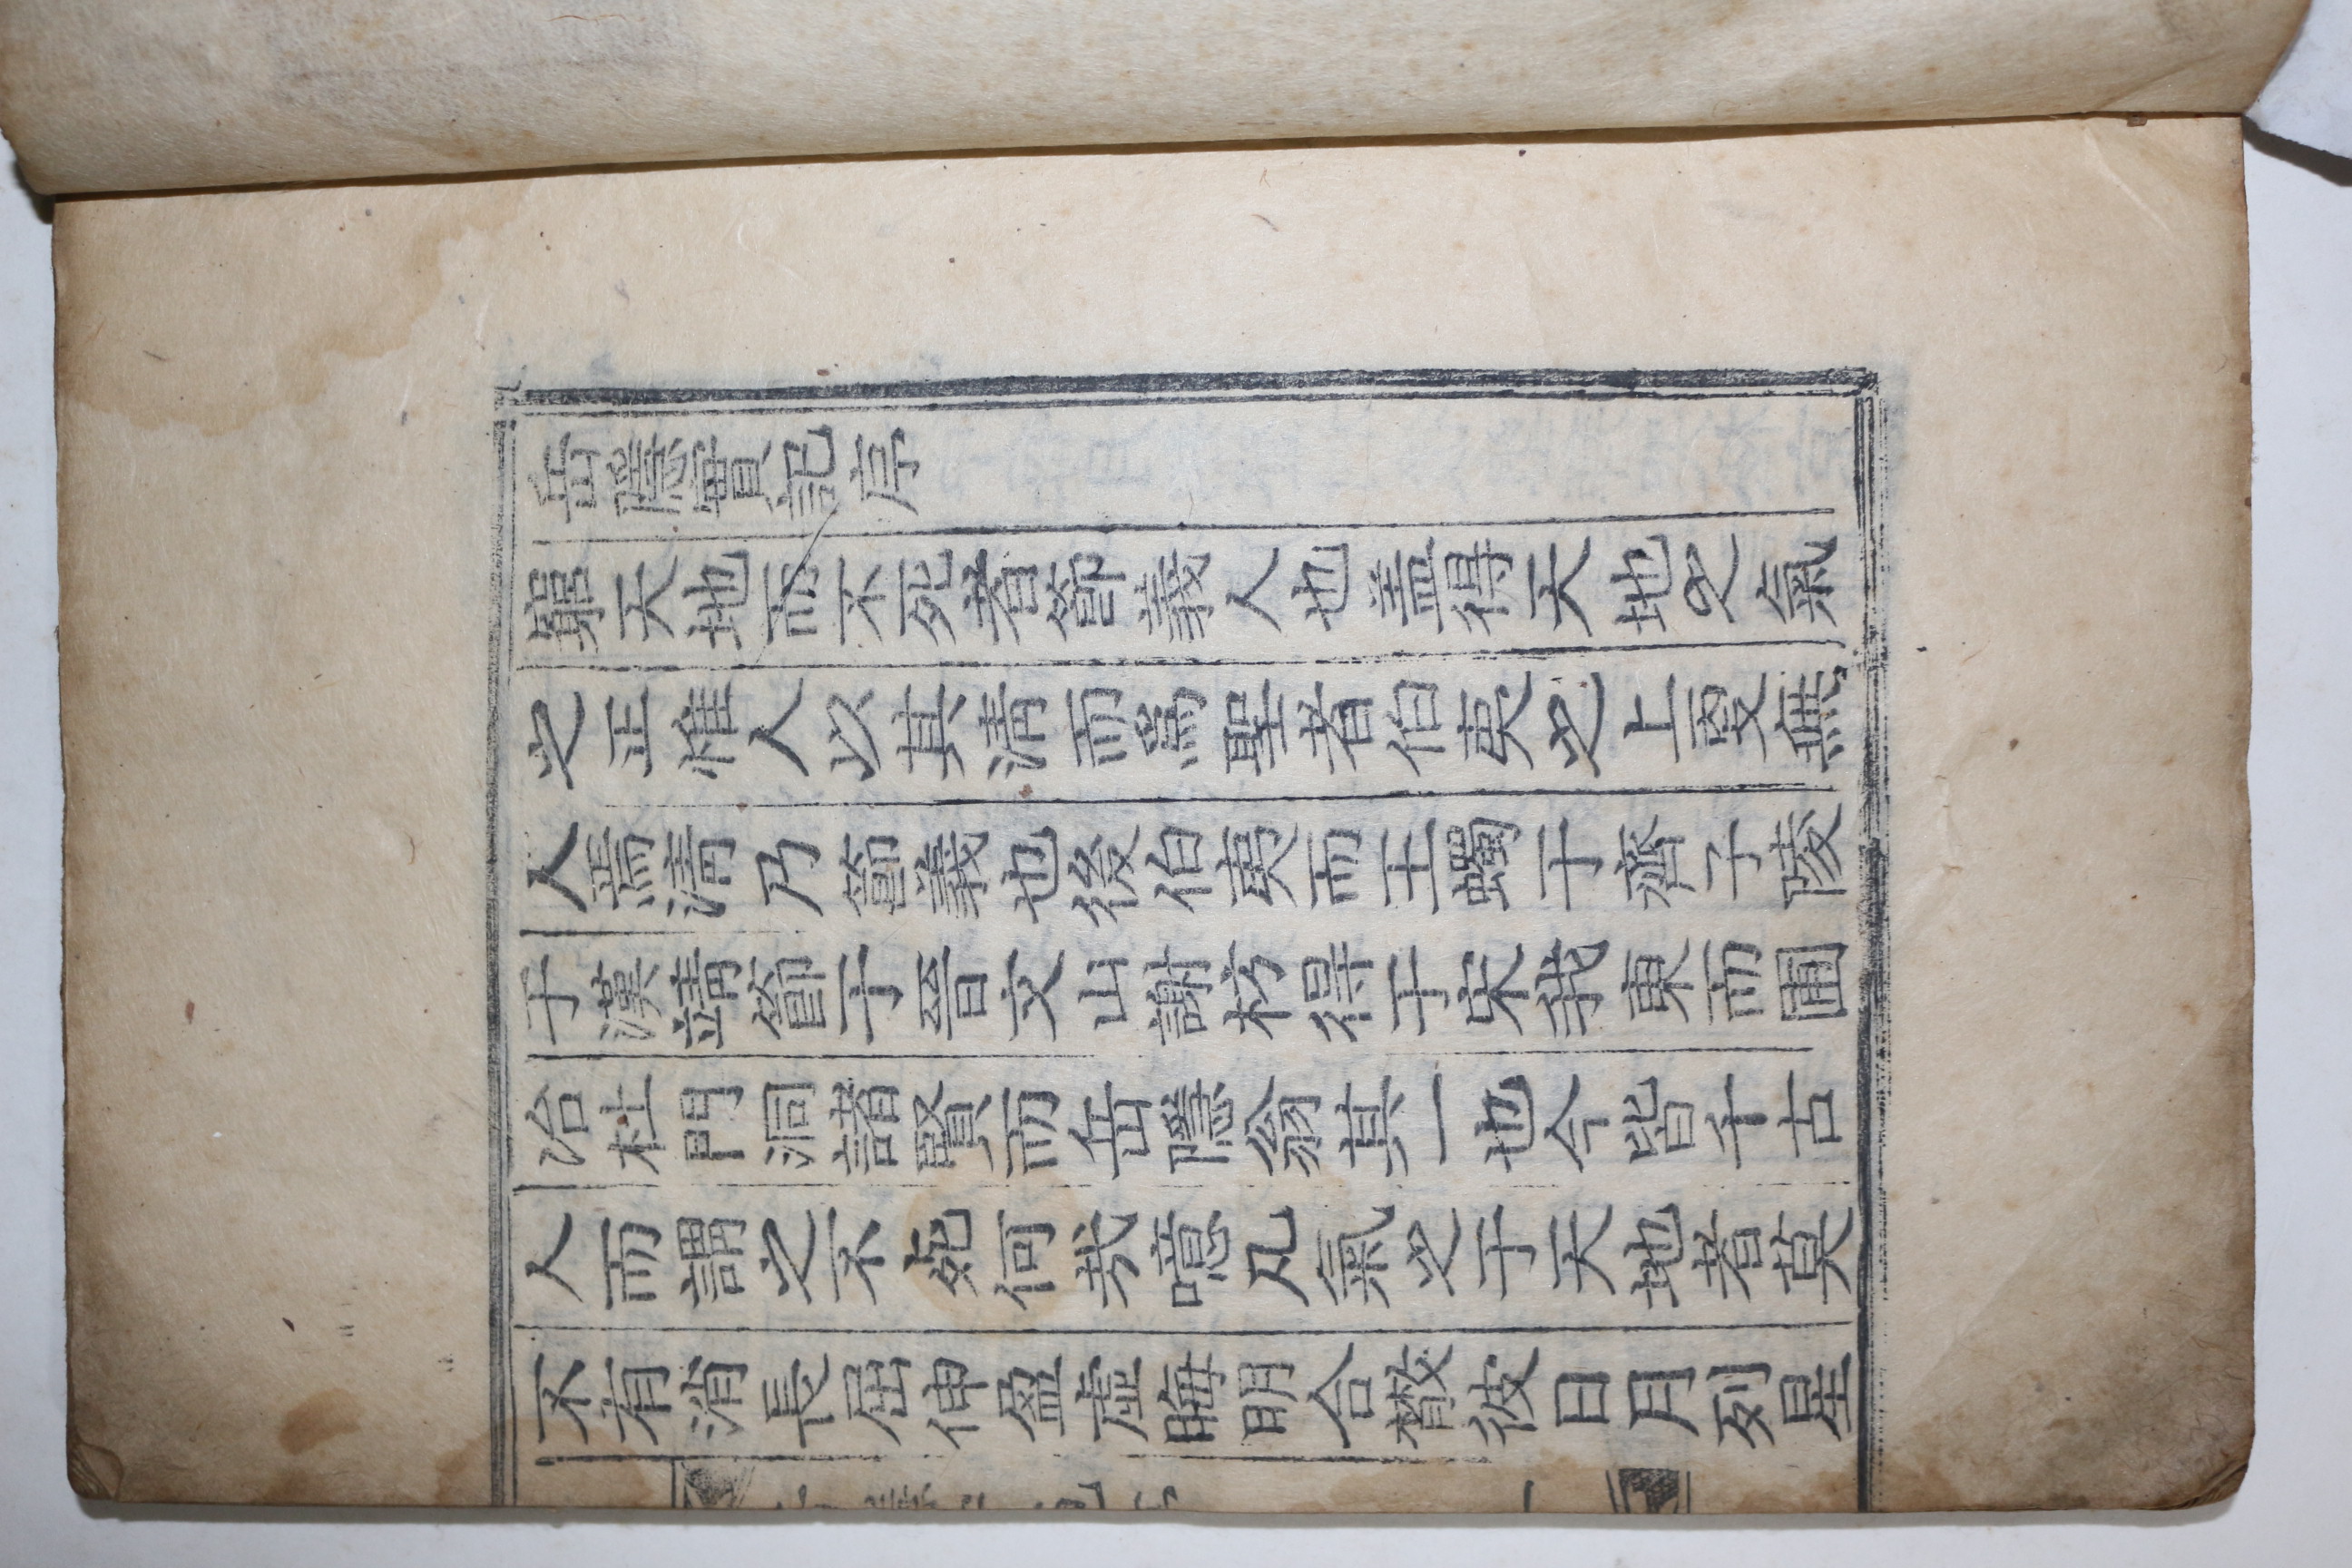 岳隱實記序
窮天地而不死者節義人也盖得天地之氣
之正惟人以其淸而爲聖者伯夷之上更無
人焉淸乃節義也後伯夷而王蠋于齊子陵
于漢靖節于晉文山謝枋得于宋我東而圃
冶杜門洞諸賢而岳隱翁其一也今皆千古
人而謂之不死何㢤噫凡氣之于天地者莫
不有消長屈伸盈虛晦明合散彼日月列星